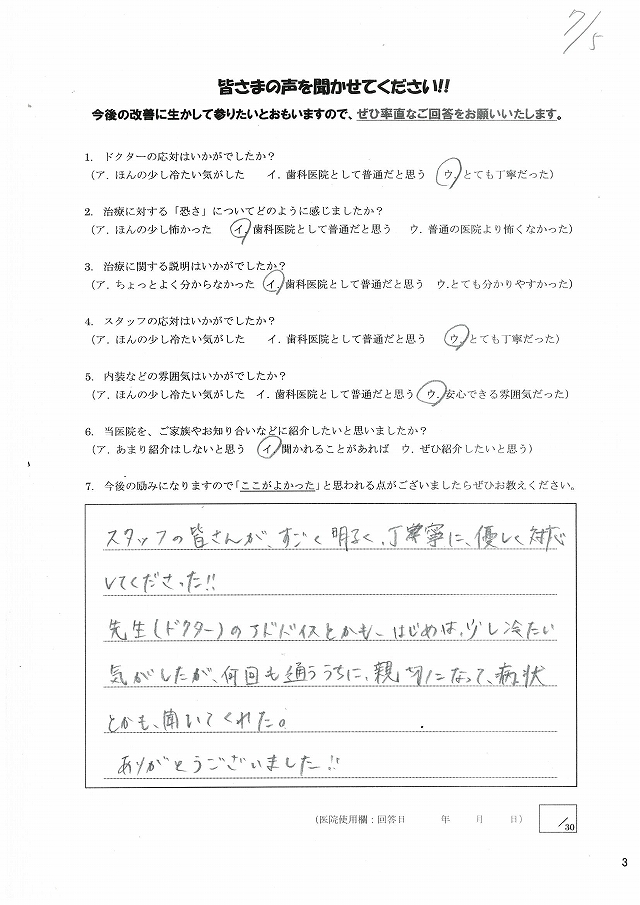 7/5
皆さまの声を聞かせてください!!
今後の改善に生かして参りたいとおもいますので、ぜひ率直なご回答をお願いいたします。
1. ドクターの応対はいかがでしたか？
（ア．ほんの少し冷たい気がした　イ．歯科医院として普通だと思う　ウ．とても丁寧だった）
2. 治療に対する「恐さ」についてどのように感じましたか？
（ア．ほんの少し怖かった　イ．歯科医院として普通だと思う　ウ．普通の医院より怖くなかった）
3. 治療に関する説明はいかがでしたか？
（ア．ちょっとよく分からなかった　イ．歯科医院として普通だと思う　ウ.とても分かりやすかった）
4. スタッフの応対はいかがでしたか？
（ア．ほんの少し冷たい気がした　イ．歯科医院として普通だと思う　ウ．とても丁寧だった）
5. 内装などの雰囲気はいかがでしたか？
（ア．ほんの少し冷たい気がした　イ．歯科医院として普通だと思う　ウ．安心できる雰囲気だった）
6. 当医院を、ご家族やお知り合いなどに紹介したいと思いましたか？
（ア．あまり紹介はしないと思う　イ．聞かれることがあれば　ウ．ぜひ紹介したいと思う）
7. 今後の励みになりますので「ここがよかった」と思われる点がございましたらぜひお教えください。
スタッフの皆さんが、すごく明るく、丁寧に、優しく対応
してくださった!!
先生(ドクター)のアドバイスとかも、はじめは、少し冷たい
気がしたが、何回も通ううちに、親切になって、病状
とかも、聞いてくれた。
ありがとうございました!!
（医院使用欄：回答日　年　月　日）
/30
3